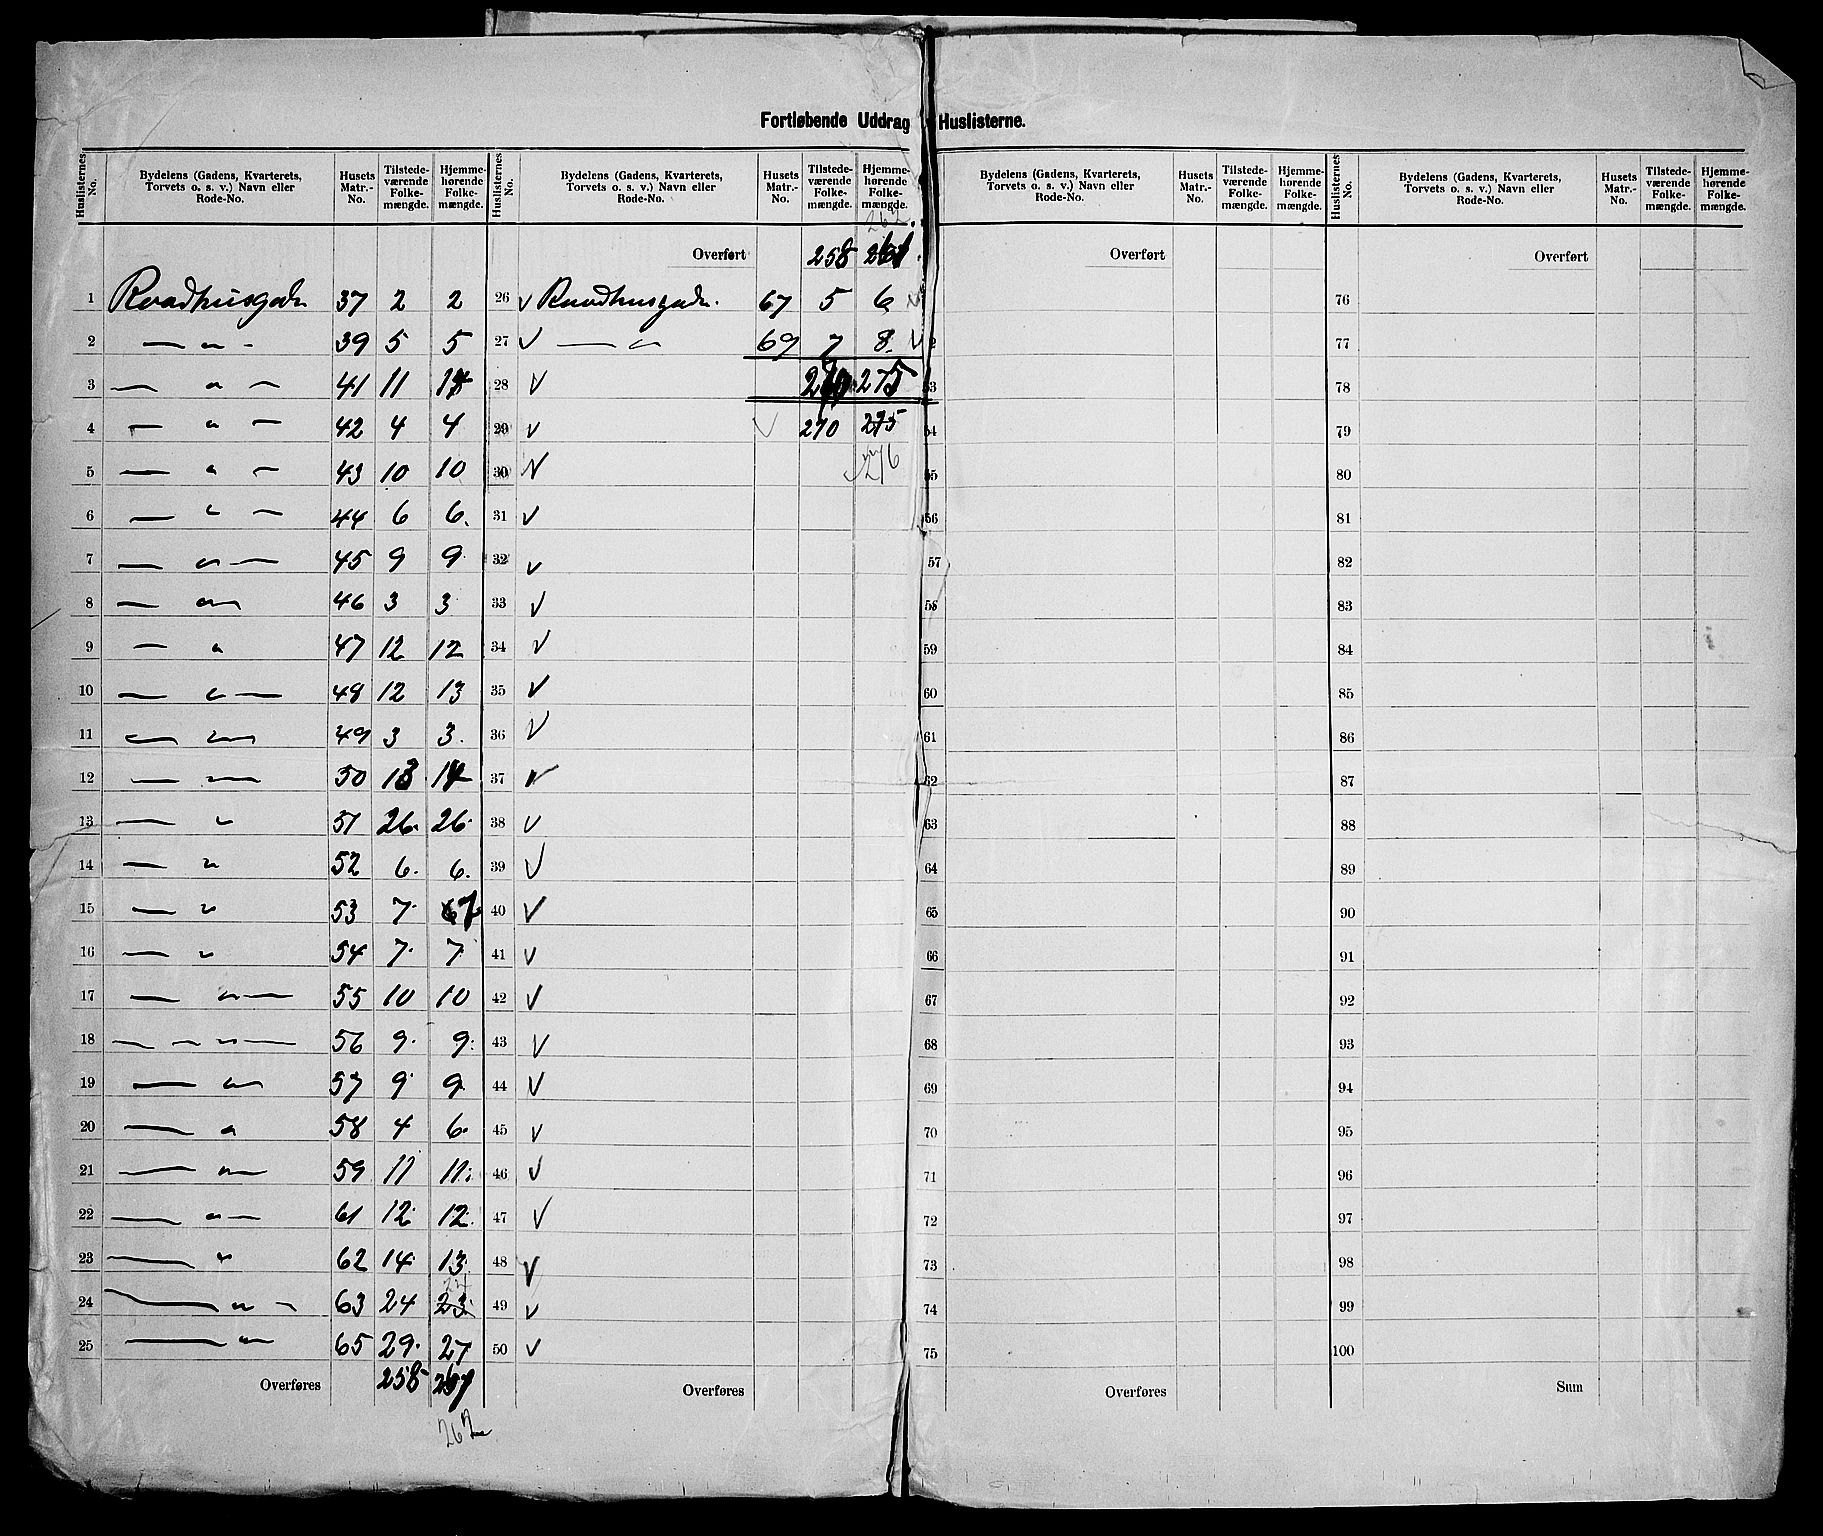 Fortløbende Uddrag Huslisterne.
Huslisternes No. | Bydelens (Gadens, Kvarterets, Torvets o. s. v.) Navn eller Rode-No. | Husets Matr.-No. | Tilstede-værende Folke-mængde. | Hjemme-hørende Folke-mængde.
1 Raadhusgaden 37 2 2
2 — „ - 39 5 5
3 — „ — 41 11
4 — „ — 42 4 4
5 — „ — 43 10 10
6 — „ — 44 6 6.
7 — „ — 45 9 9.
8 — „ 46 3 3
9 — „ 47 12 12
10 — „ — 48 12 13
11 — „ 49 3 3.
12 — „ 50 13 14
13 — „ 51 26. 26.
14 — „ 52 6. 6.
15 — „ 53 7. 7.
16 — „ 54 7. 7.
17 — „ — 55 10 10
18 — — „ — 56 9. 9.
19 — „ 57 9. 9.
20 — „ 58 4 6.
21 — „ 59 11 11.
22 — „ — 61 12. 12.
23 — „ 62 14. 13.
24
24 — „ — 63 24 23.
25 — „ 65 29. 27
Overføres 258
262
Huslisternes No. | Bydelens (Gadens, Kvarterets, Torvets o. s. v.) Navn eller Rode-No. | Husets Matr.-No. | Tilstede-værende Folke-mængde. | Hjemme-hørende Folke-mængde.
262
Overført 258 261
26 √ Raadhusgaden. 67 5 6
27 √ — „ 69 7 8.
28 √ 270 275
29 √ √ 270 275
30 √ √ 276
31 √
32 √
33 √
34 √
35 √
36 √
37 √
38 √
39 √
40 √
41 √
42 √
43 √
44 √
45 √
46 √
47 √
48 √
49 √
50 √
Overføres
Bydelens (Gadens, Kvarterets, Torvets o. s. v.) Navn eller Rode-No. | Husets Matr.-No. | Tilstede-værende Folke-mængde. | Hjemme-hørende Folke-mængde.
Overført
2
53
54
55
56
57
58
59
60
61
62
63
64
65
66
67
68
69
70
71
72
73
74
75
Overføres
Huslisternes No. | Bydelens (Gadens, Kvarterets, Torvets o. s. v.) Navn eller Rode-No. | Husets Matr.-No. | Tilstede-værende Folke-mængde. | Hjemme-hørende Folke-mængde.
Overført
76
77
78
79
80
81
82
83
84
85
86
87
88
89
90
91
92
93
94
95
96
97
98
99
100
Sum